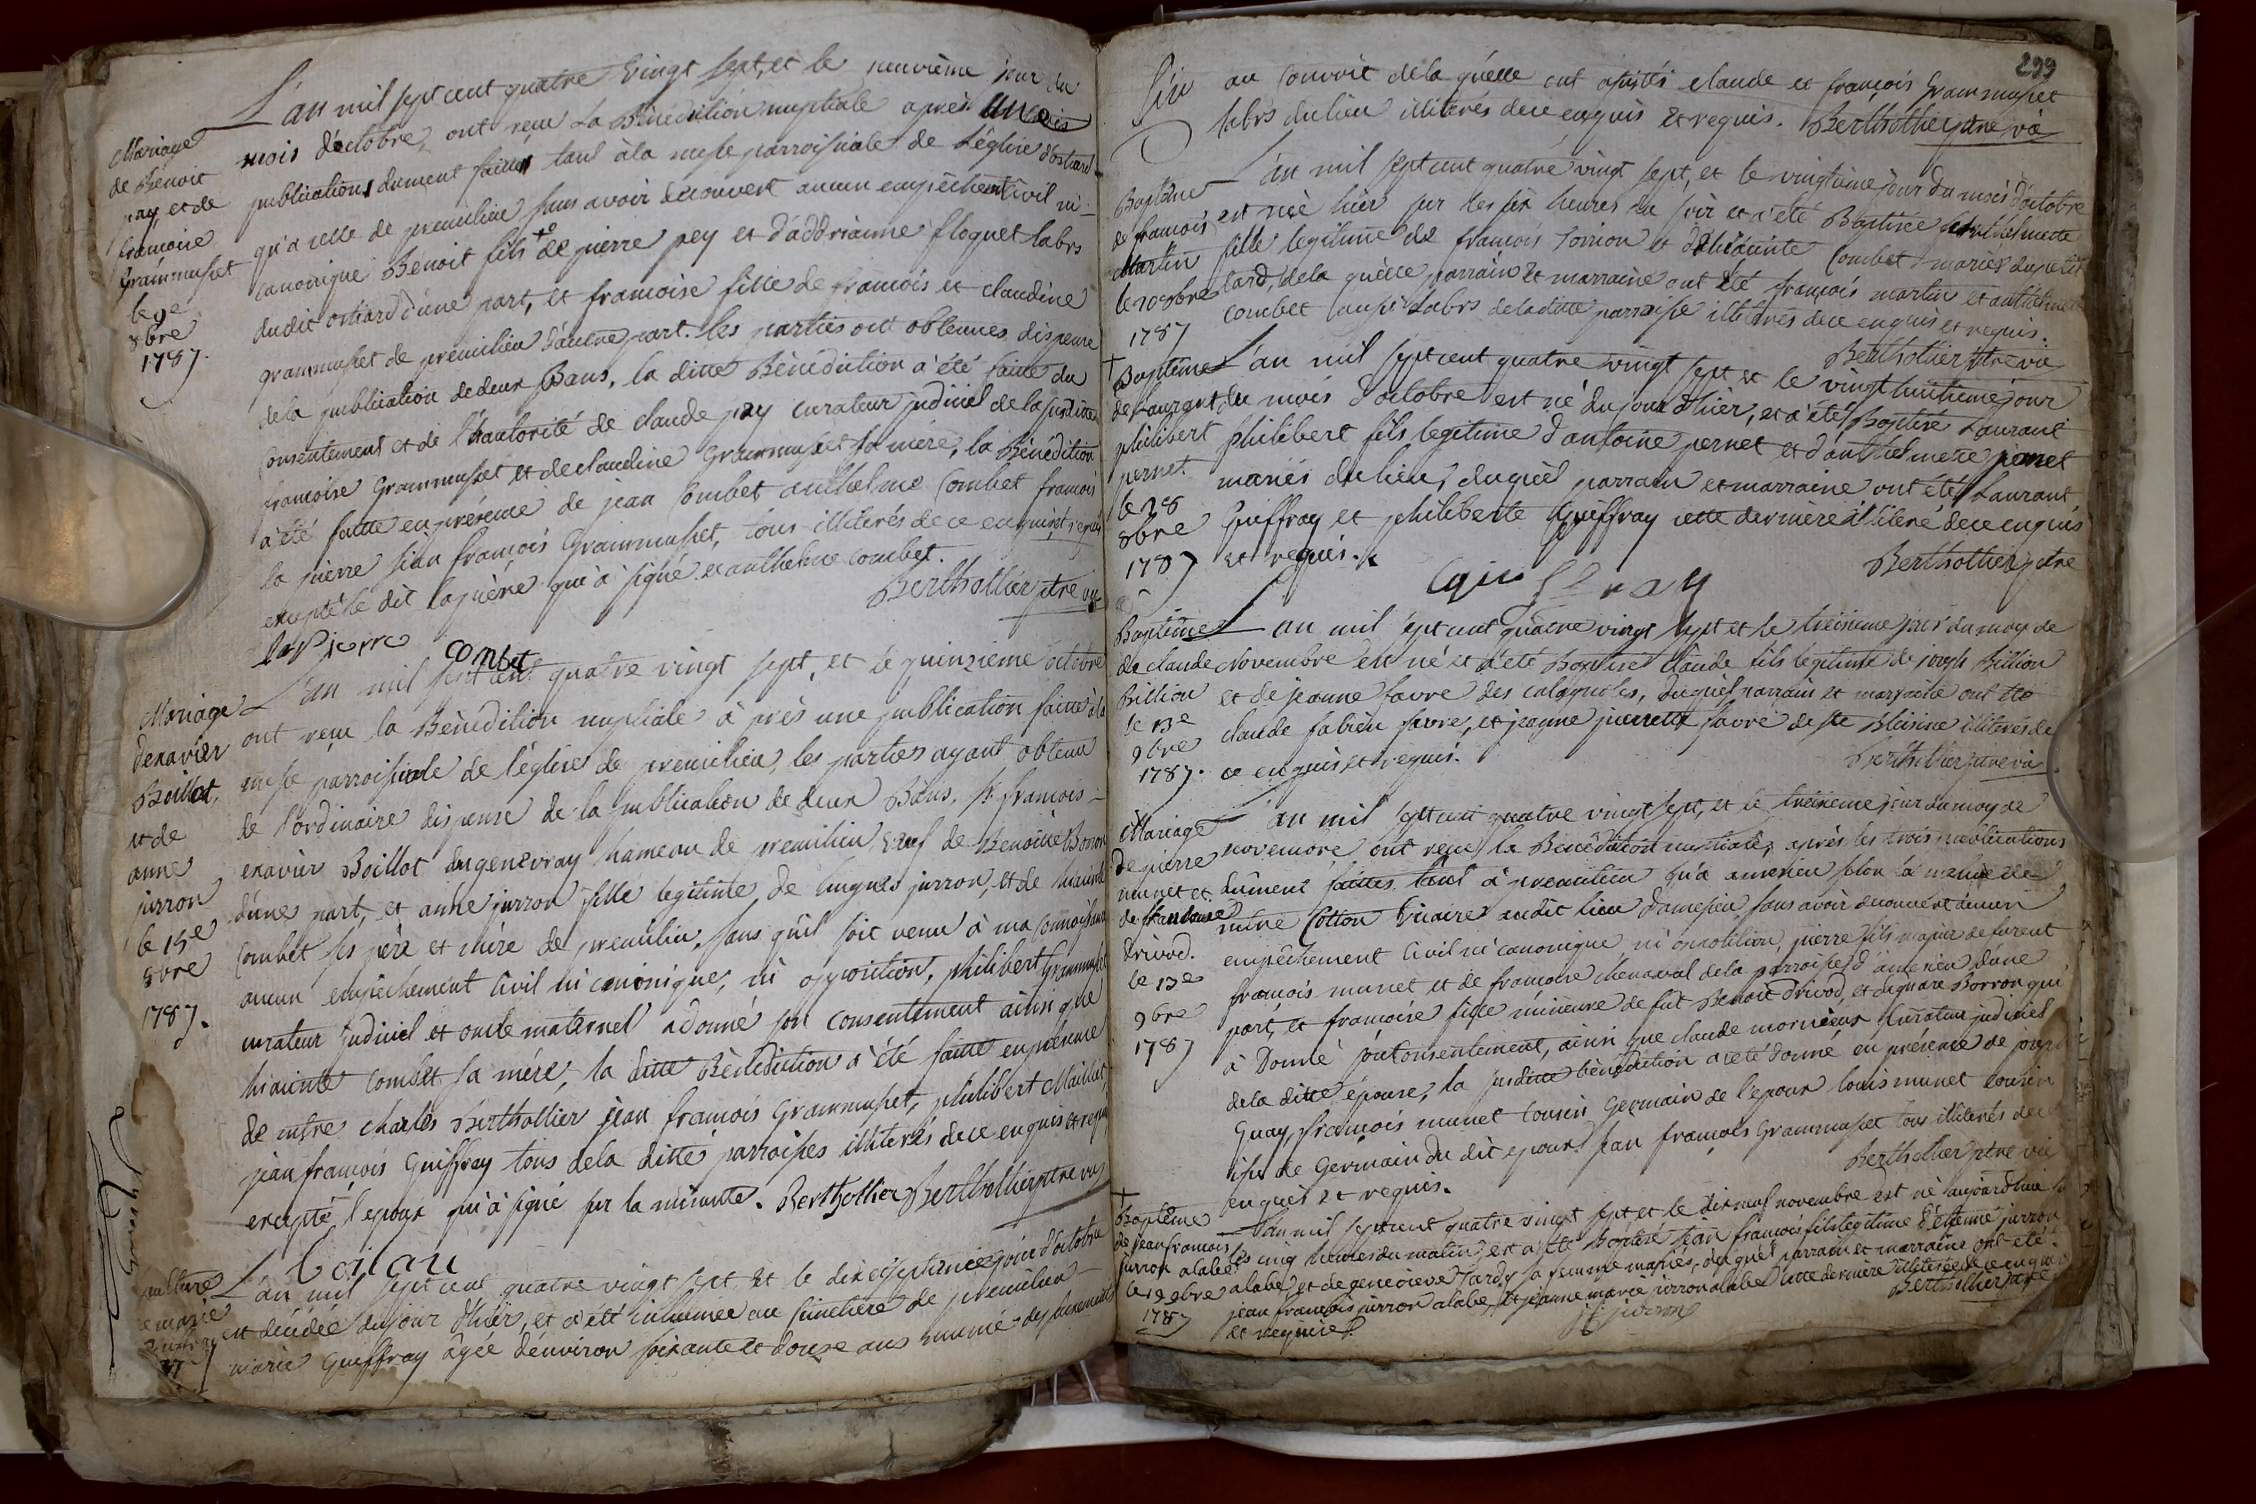 Mariage
de Benoit
pay et de
francoise
Grammuset
le 9e
8bre
1787.
L'an mil sept cent quatre vingt sept, et le neuvième jour du
mois d'octobre, ont reçu la Bénédition nuptiale après une
publications dument faites tant à la messe parroissiale de L'église d'ostard
qu'a celle de premilieu sans avoir decouvert aucun empêchement Civil ni
canonique Benoit fils de pierre pey et d'addrianne floquet labrs
dudit ostiard d'une part, et francoise fille de francois et claudine
grammuset de premilieu d'autre part. les parties ont obtenues dispense
de la publication de deux Bans, la ditte Bénédition a été faitte du
consentement et de l'hautorité de claude pay curateur judiciel de la susditte
francoise Grammuset et de claudine Grammuset sa mère, la Bénédition
a été faitte en présence de jean Combet anthelme Combet francois
la pierre jean françois Grammuset, tous illiterés de ce enquis et requis
excepté le dit la pierre qui a signé et anthelme combet.
Berthollier ptre vic
la Pierre combet
Mariage
de xavier
Boillot,
et de
anne
jurron
le 15e
8bre
1787.
L'an mil sept cent quatre vingt sept, et le quinzieme octobre
ont reçu la Bénédition nuptiale après une publication faitte à la
messe parroissiale de l'église de premilieu, les parties ayant obtenu
de l'ordinaire dispense de la publication de deux Bans, sr. francois
exavier Boillot du genevray hameau de premilieu veuf de Benoite Borron
d'une part, et anne jurron fille legitime de hugues jurron, et de hiacinte
Combet ses père et mère de premilieu, sans qu'il soit venu à ma connoissance
aucun empêchement Civil ni canonique, ni opposition, philibert Grammuset
curateur judiciel et oncle maternel a donné son consentement ainsi que
hiacinte combet sa mère, la ditte Bénédiction a été faitte en présence
de mtre charles Berthollier jean francois Grammuset, philibert Maillet,
jean françois Guiffray tous de la ditte parroisses illiterés de ce enquis et requis
excepté l'epoux qui a signé sur la minutte. Berthollier Berthollier ptre vic
Boilau
marie
L'an mil sept cent quatre vingt sept et le dix septieme jour d'octobre
est décédée du jour d'hier, et a été inhumée au simetière de premilieu
marie Gueffray âgée d'environ soixante et douze ans munie des sacrements
299
au convoit de la quelle ont assistés claude et françois Grammuset
labrs du lieu illiterés de ce enquis et requis. Berthollier ptre vic
Baptême
de francois
Martin
le 20 8bre
1787
L'an mil sept cent quatre vingt sept, et le vingtieme jour du mois d'octobre
est née hier sur les six heures du soir et a été Baptisée anthelmette
fille legitime de francois Loirion et d'hiacinte Combet mariés du petit
lard, de la quelle parrain et marraine ont été françois martin et anthelmette
combet aussi labrs de la ditte parroisse illiterés de ce enquis et requis.
Berthollier ptre vic
Baptême
de Laurant
philibert
pernet
le 28
8bre
1787
L'an mil sept cent quatre vingt sept et le vingt huitieme jour
du mois d'octobre est né du jour d'hier, et a été Baptisé Laurant
philibert fils legitime d'antoine pernet et d'anthelmette pernet
mariés du lieu, duquel parrain et marraine ont été Laurant
Guiffray et philiberte Guiffray cette dernière illiteré de ce enquis
et requis.
Berthollier ptre
Guiffray
Baptême
de claude
Billion
le 13e
9bre
1787.
L'an mil sept cent quatre vingt sept et le treisieme jour du moy de
Novembre est né et a été Baptisé Claude fils legitime de joseph Billion
et de jeanne favre des calagnoles, duquel parrain et marraine ont été
claude fabien favre, et jeanne pierrette favre de ste Blaisine illiterés de
ce enquis et requis.
Berthollier ptre vic
Mariage
de pierre
munet et
de francoise
Drivod.
le 13e
9bre
1787
L'an mil sept cent quatre vingt sept, et le treisieme jour du moy de
novembre ont reçu la Bénédition nuptiale, après les trois publications
dûment faittes tant à premilieu qu'a amesieu selon la remise de
mtre Cottion Vicaire audit lieu d'amesieu, sans avoir decouvert aucun
empêchement Civil ni canonique ni opposition, pierre fils majeur de furent
francois munet et de francoise chenaval de la parroisse d'amesieu d'une
part, et francoise fille mineure de fut Benoit Drivod, et de Borron qui
à Donné son consentement, ainsi que claude mornieux curateur judiciel
de la ditte épouse, la susditte bénédiction a été donné en présence de joseph
Guay, francois munet Cousin Germain de l'epoux louis munet cousin
issu de Germain du dit epoux jean françois Grammuset tous illiterés de ce
enquis et requis.
Berthollier ptre vic
Baptême
de jean francois
jurron alabe
le 19 9bre
1787
L'an mil sept cent quatre vingt sept et le dix neuf novembre est né aujourd'hui
les cinq heures du matin, et a été Baptisé jean francois fils legitime d'etienne jurron
alabe, et de genevieve Tardy sa femme mariés, duquel parrain et marraine ont été
jean francois jurron alabe, et jeanne marie jurron alabe cette dernière illiterée de ce enquis
et requise.
Berthollier ptre
j f jurron